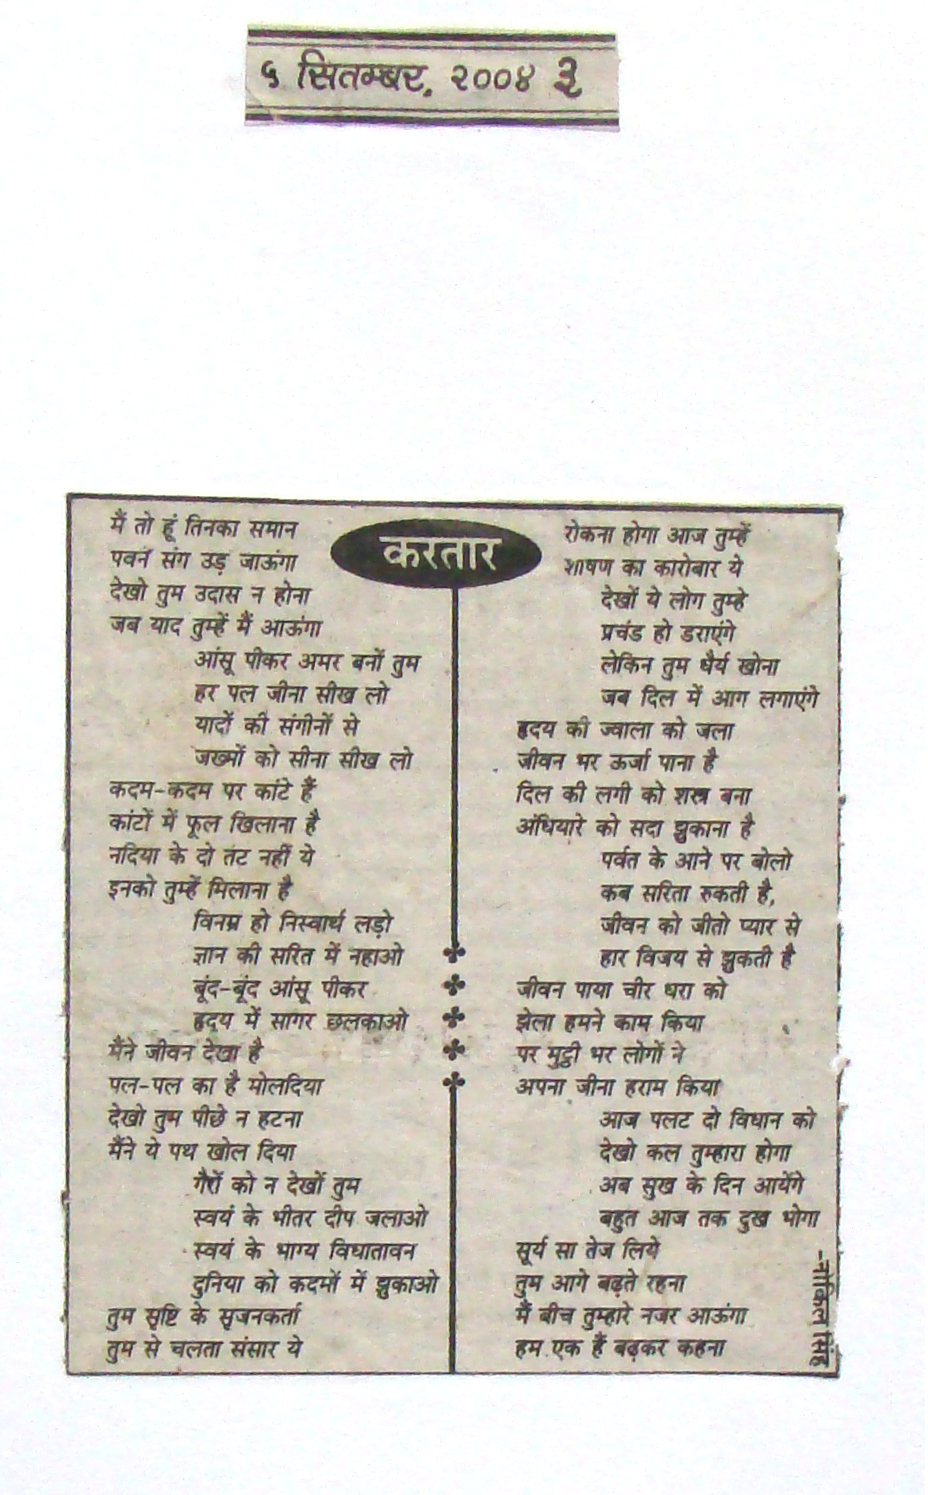 ५ सितम्बर, २००४ ३
करतार
मैं तो हूं तिनका समान
पवन संग उड़ जाऊंगा
देखो तुम उदास न होना
जब याद तुम्हें मैं आऊंगा
आंसू पीकर अमर बनों तुम
हर पल जीना सीख लो
यादों की संगीनों से
जख्मों को सीना सीख लो
कदम-कदम पर कांटे हैं
कांटों में फूल खिलाना है
नदिया के दो तट नहीं ये
इनको तुम्हें मिलाना है
विनम्र हो निस्वार्थ लड़ो
ज्ञान की सरित में नहाओ
बूंद-बूंद आंसू पीकर
हृदय में सागर छलकाओ
मैंने जीवन देखा है
पल-पल का है मोलदिया
देखो तुम पीछे न हटना
मैंने ये पथ खोल दिया
गैरों को न देखों तुम
स्वयं के भीतर दीप जलाओ
स्वयं के भाग्य विधातावन
दुनिया को कदमों में झुकाओ
तुम सृष्टि के सृजनकर्ता
तुम से चलता संसार ये
रोकना होगा आज तुम्हें
शाषण का कारोबार ये
देखों ये लोग तुम्हे
प्रचंड हो डराएंगे
लेकिन तुम धैर्य खोना
जब दिल में आग लगाएंगे
हृदय की ज्वाला को जला
जीवन भर ऊर्जा पाना है
दिल की लगी को शस्त्र बना
अंधियारे को सदा झुकाना है
पर्वत के आने पर बोलो
कब सरिता रुकती है,
जीवन को जीतो प्यार से
हार विजय से झुकती है
जीवन पाया चीर धरा को
झेला हमने काम किया
पर मुट्ठी भर लोगों ने
अपना जीना हराम किया
आज पलट दो विधान को
देखो कल तुम्हारा होगा
अब सुख के दिन आयेंगे
बहुत आज तक दुख भोगा
सूर्य सा तेज लिये
तुम आगे बढ़ते रहना
मैं बीच तुम्हारे नजर आऊंगा
हम एक हैं बढ़कर कहना
सिंह